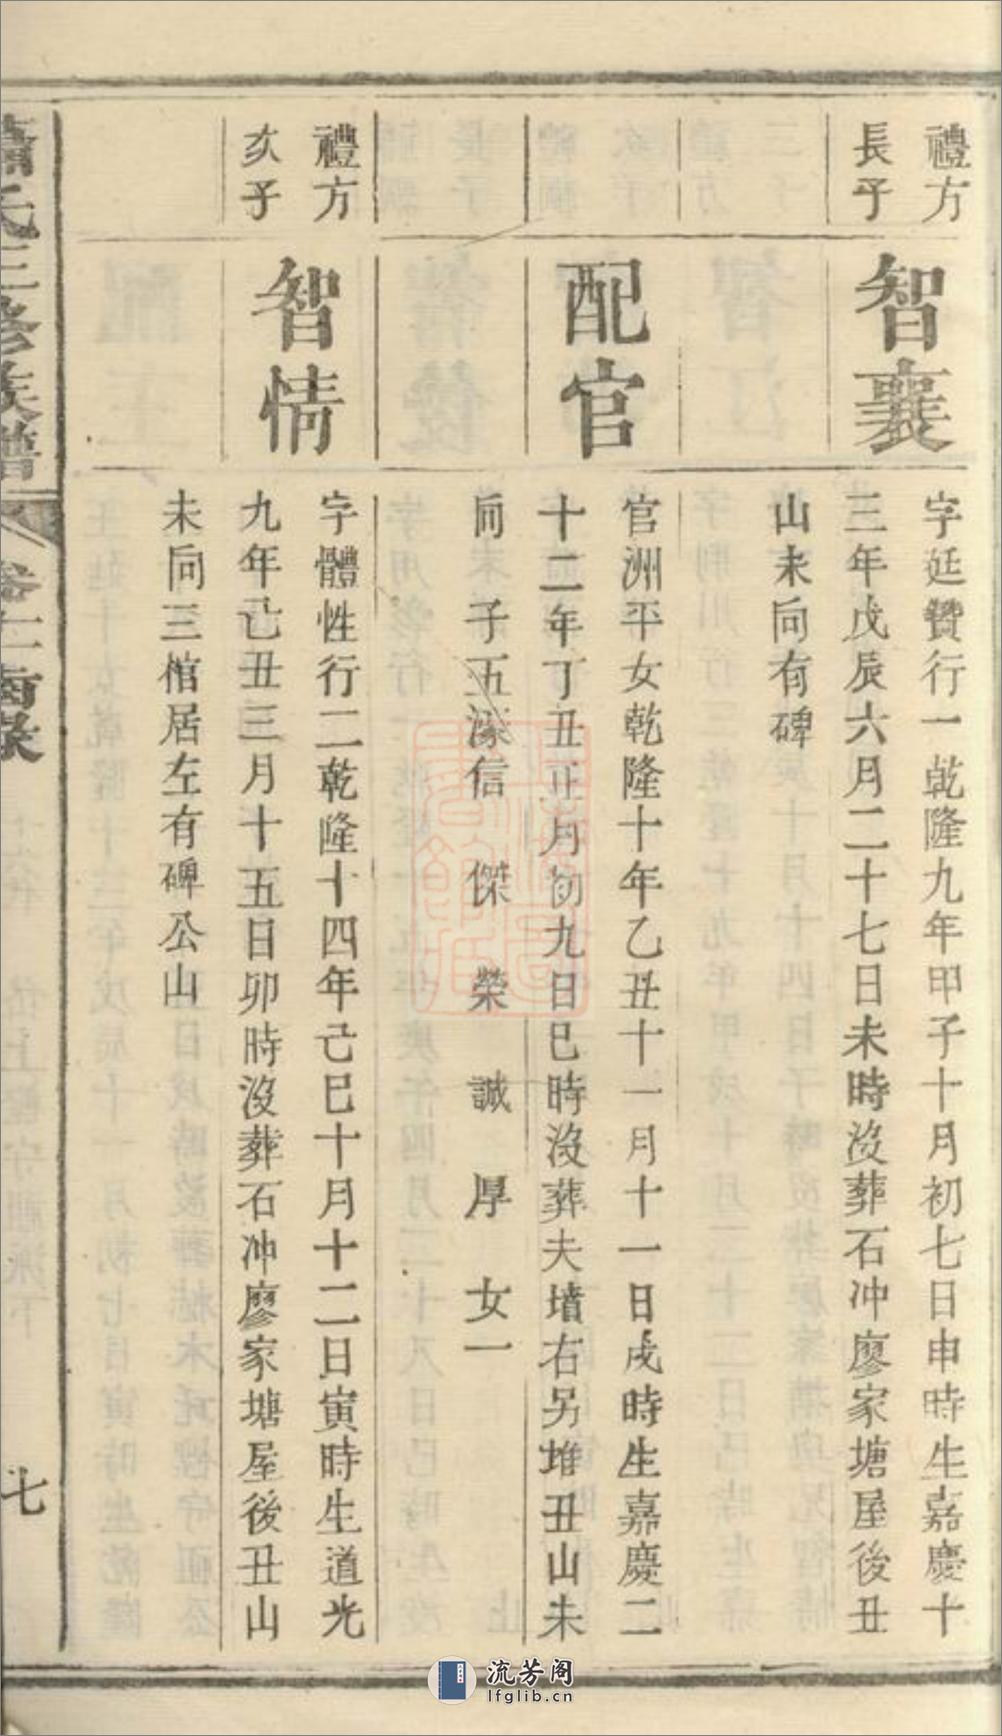 禮方
長子
智襄
字廷贊行一乾隆九年甲子十月初七日申時生嘉慶十
三年戊辰六月二十七日未時沒葬石冲廖家塘屋後丑
山未向有碑
配官
官洲平女乾隆十年乙丑十一月十一日戌時生嘉慶二
十二年丁丑正月初九日巳時沒葬夫墳右另堆丑山未
向 子五濠信 傑 榮 誠 厚 女一
禮方
次子
智情
字體性行二乾隆十四年己巳十月十二日寅時生道光
九年己丑三月十五日卯時沒葬石冲廖家塘屋後丑山
未向三棺居左有碑公山
蕭氏三修族譜
七
流芳阁
lfglib.cn